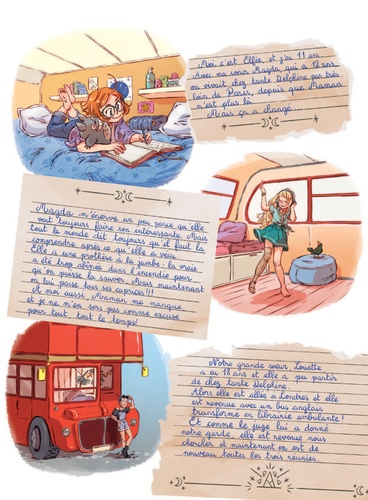 Moi c'est Ellie, et j'ai 11 ans.
Avec ma sœur Magda, qui a 12 ans,
on vivait chez tante Delphine pas très
loin de Paris, depuis que Maman
n'est plus là.
Mais ça a changé...
Magda m'énerve un peu parce qu'elle
veut toujours faire son intéressante. Mais
tout le monde dit toujours qu'il faut la
comprendre après ce qu'elle a vécu.
Elle a une prothèse à la jambe : la vraie
a été trop abîmée dans l'incendie pour
qu'on puisse la sauver. Mais maintenant
on lui passe tous ses caprices !!!
Et moi aussi, Maman me manque,
et je ne m'en sers pas comme excuse
pour tout, tout le temps!
Notre grande sœur Louette
a eu 18 ans et elle a pu partir
de chez tante Delphine.
Alors elle est allée à Londres et elle
est revenue avec un bus anglais
transformé en librairie ambulante !
Et comme le juge lui a donné
notre garde, elle est revenue nous
chercher et maintenant on est de
nouveau toutes les trois réunies.